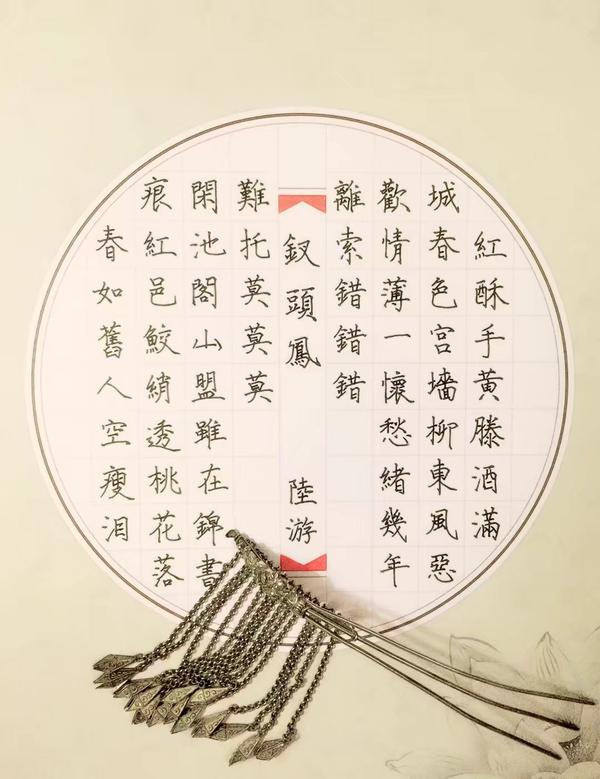 釵頭鳳
陸游
紅酥手黃滕酒滿
城春色宮墻柳東風惡
歡情薄一懷愁緒幾年
離索錯錯錯
春如舊人空瘦泪
痕紅邑鮫綃透桃花落
閑池閣山盟雖在錦書
難托莫莫莫